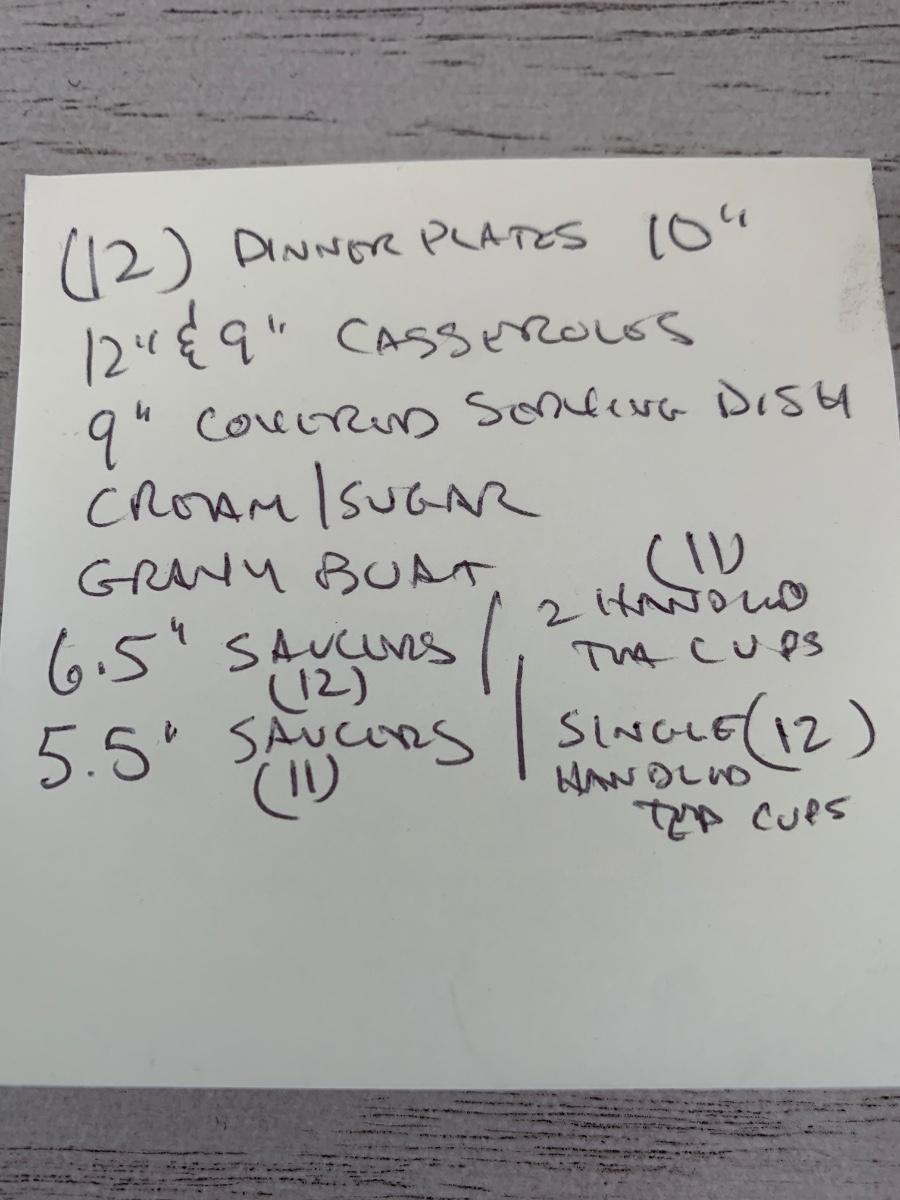 (12) DINNER PLATES 10"
12" & 9" CASSEROLES
9" COVERED SERVING DISH
CREAM/SUGAR
GRAVY BOAT
6.5" SAUCERS (12) / (11) 2 HANDLED TEA CUPS
5.5" SAUCERS (11) / SINGLE (12) HANDLED TEA CUPS